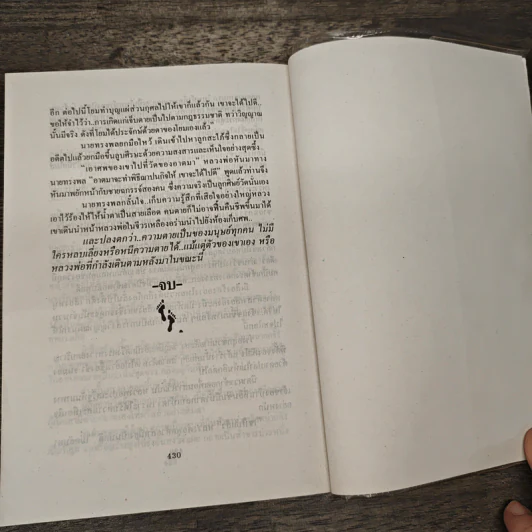 อีก ต่อไปนี้โยมทำบุญแผ่ส่วนกุศลไปให้เขาก็แล้วกัน เขาจะได้ไปดี..
ขอให้จำไว้ว่า..การเกิดแก่เจ็บตายเป็นไปตามกฎธรรมชาติ ทว่าวิญญาณ
นั้นมีจริง ดังที่โยมได้ประจักษ์ด้วยตาของโยมเองแล้ว"
นายทรงพลยกมือไหว้ เดินเข้าไปหาลูกสะใภ้ซึ่งกลายเป็น
อดีตไปแล้วยกมือขึ้นลูบศีรษะด้วยความสงสารและเห็นใจอย่างสุดซึ้ง..
"เอาศพของเขาไปที่วัดของอาตมา" หลวงพ่อหันมาทาง
นายทรงพล "อาตมาจะทำพิธีฌาปนกิจให้ เขาจะได้ไปดี" พูดแล้วท่านจึง
หันมาพยักหน้ากับชายฉกรรจ์สองคน ซึ่งความจริงเป็นลูกศิษย์วัดนั่นเอง
นายทรงพลกลั้นใจ..เก็บความรู้สึกที่เสียใจอย่างใหญ่หลวง
เอาไว้ร้องไห้ให้น้ำตาเป็นสายเลือด คนตายก็ไม่อาจฟื้นคืนชีพขึ้นมาได้
เขาเดินนำหน้าหลวงพ่อในจีวรเหลืองอร่ามนำไปยังห้องเก็บศพ..
และปลงตกว่า..ความตายเป็นของมนุษย์ทุกคน ไม่มี
ใครหลบเลี่ยงหรือหนีความตายได้..แม้แต่ตัวของเขาเอง หรือ
หลวงพ่อที่กำลังเดินตามหลังมาในขณะนี้
-จบ-
430